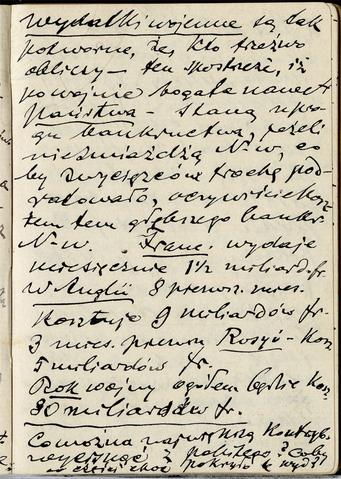 wydatki wojenne są tak
potworne, że, kto trzeźwo
obliczy – ten spostrzeże, iż
po wojnie bogate nawet
państwa – staną u pro
gu bankructwa, jeżeli
nie zmiażdżą N-w, co
by zwycięzców trochę pod-
ratowało, oczywiście kosz
tem tem głębszego bankr.
N-w. Franc. wydaje
miesięcznie 1 1/2 miliard. fr.
W Anglii 8 pierwsz. mies.
kosztuje 9 miliardów fr.
3 mies. pierwsz Rosyę – kosz
5 miliardów fr.
Rok wojny ogółem będzie kosz
80 miliardów fr.
Co można największą kontryb.
wyciągnąć z pobitego? coby
w części choć pokryło te wyd?